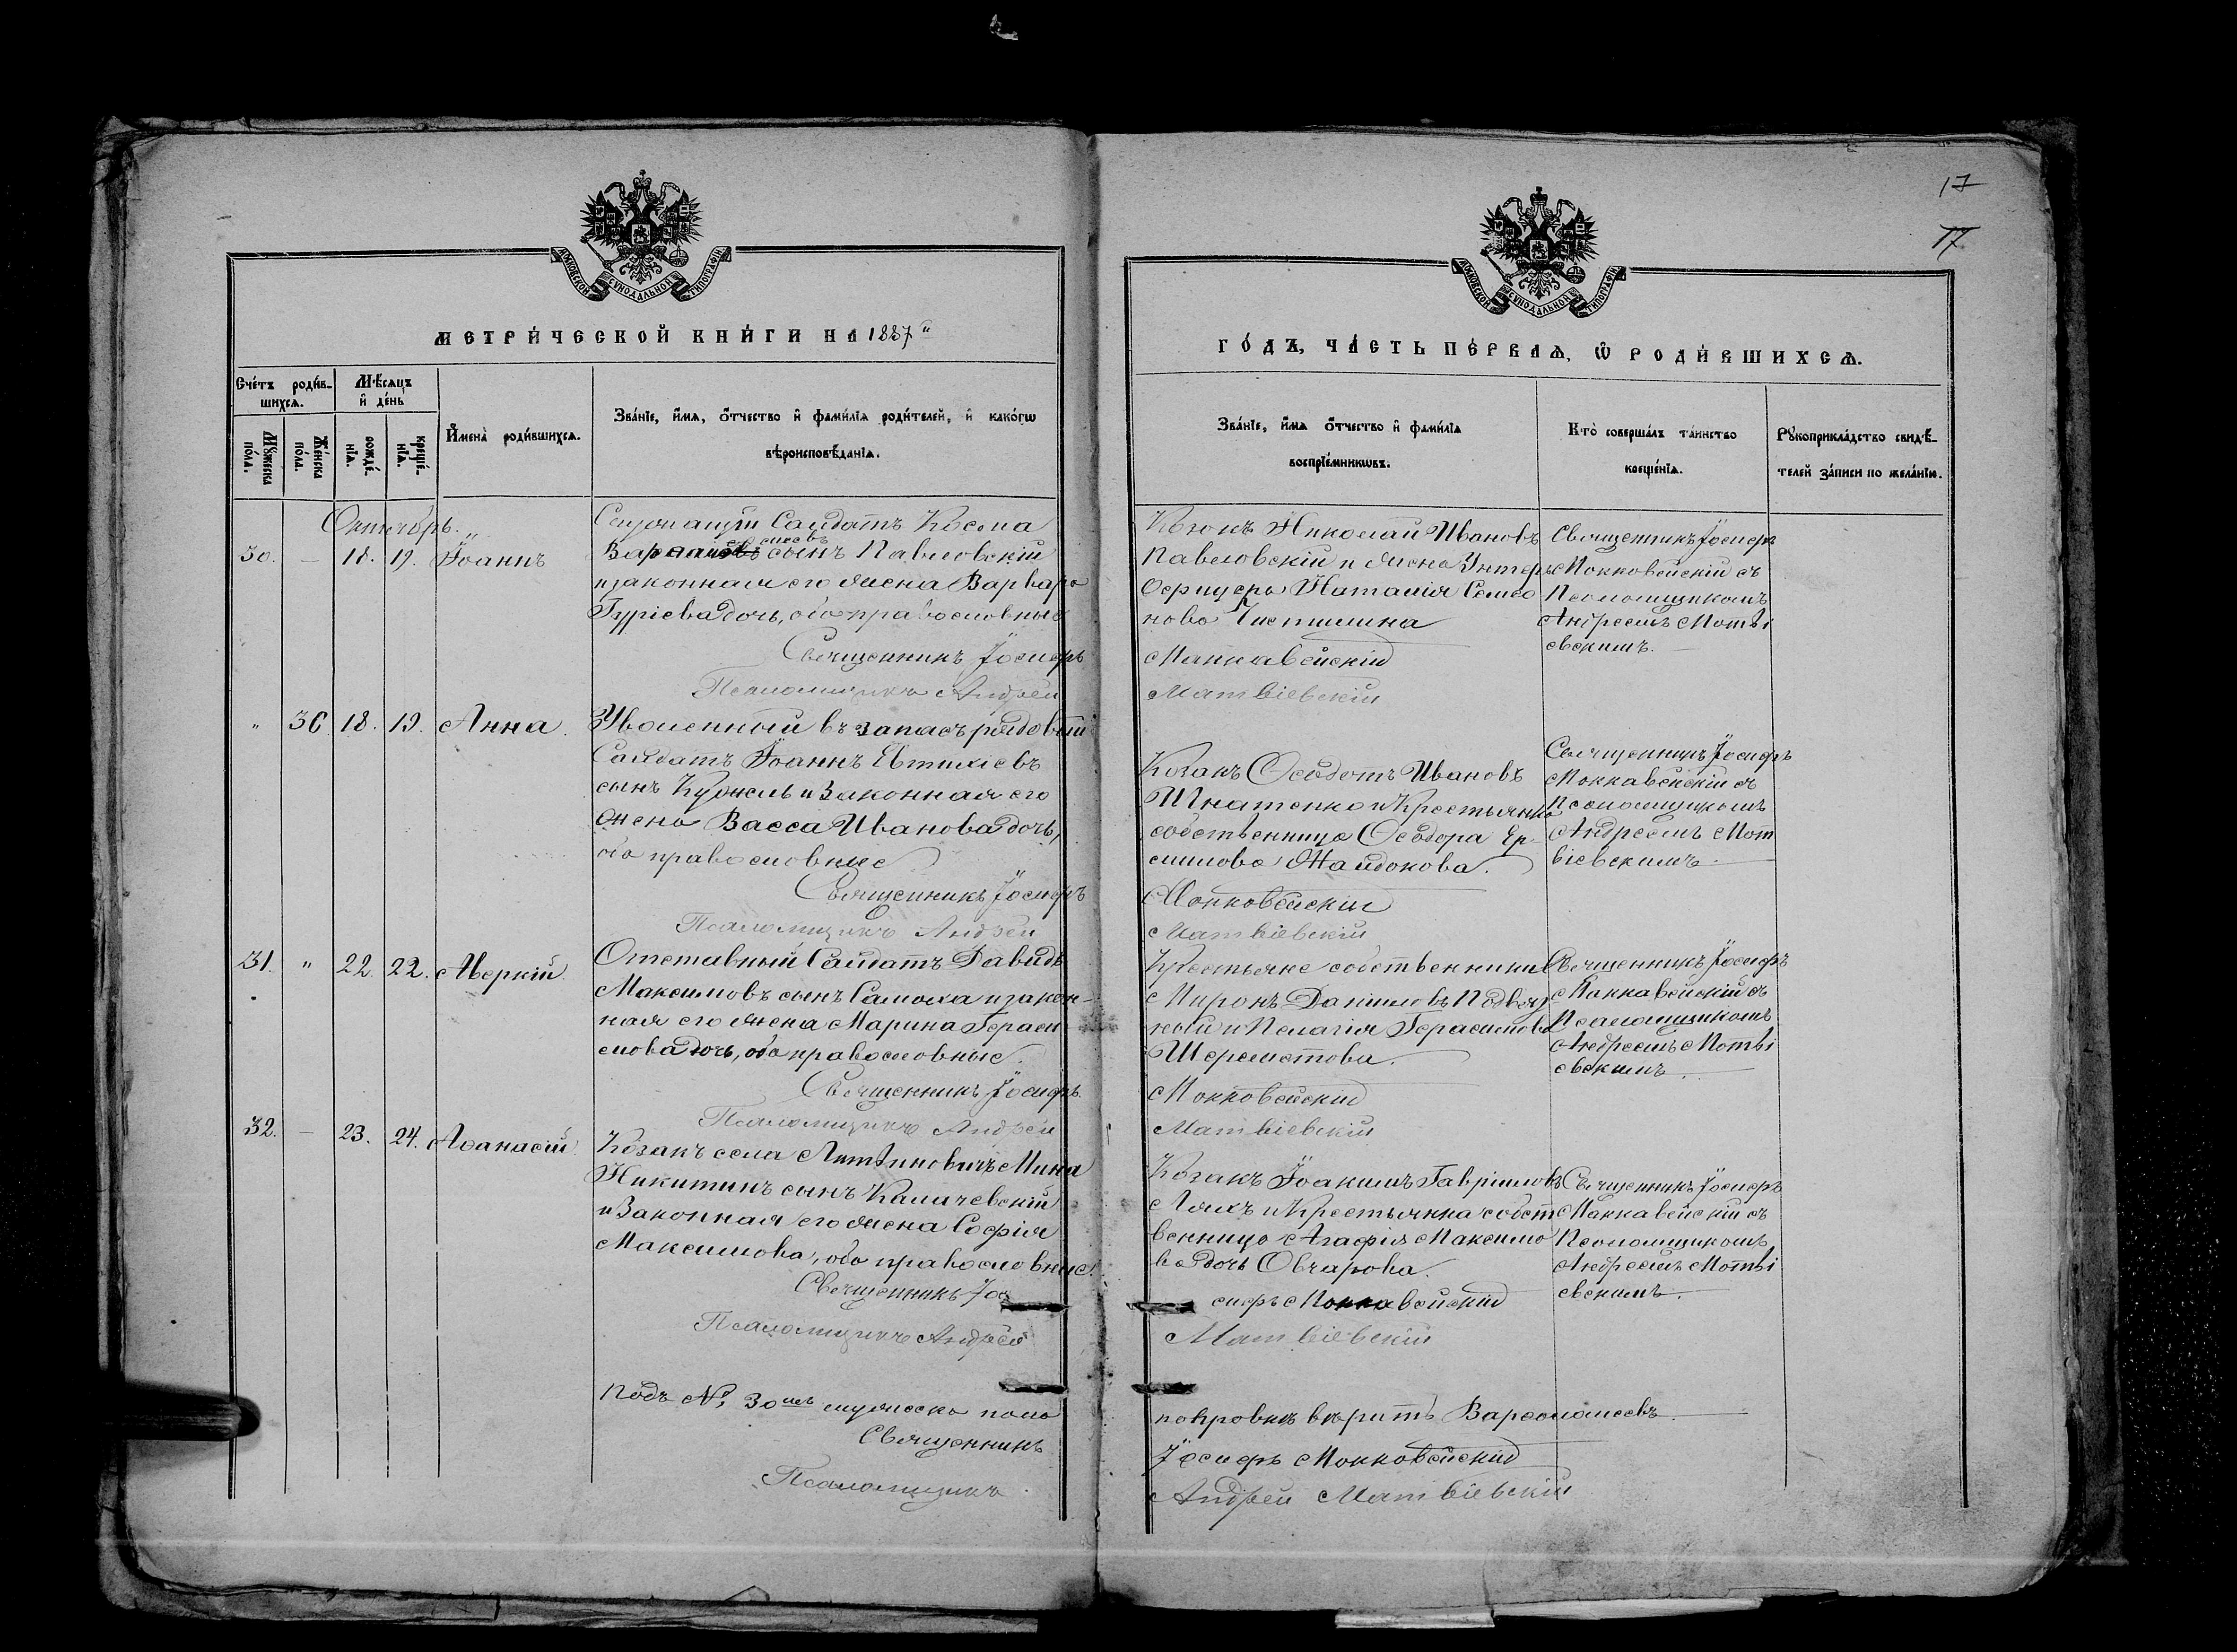 17
17
МОСКОВСКОЙ СѴНОДАЛЬНОЙ ТИПОГРАФІИ
МЕТРИ́ЧЕСКОЙ КНИ́ГИ НА 1887
Сче́тъ роди́в-
шихсѧ.
Мꙋ́жеска по́ла.
Же́нска по́ла.
Мѣ́сѧцъ
и҆ де́нь
рожде́-
нїѧ.
креще́-
нїѧ.
И҆мена̀ роди́вшихсѧ.
Зва́нїе, и҆́мѧ, ѻ҆́тчество и҆ фами́лїѧ роди́телей, и҆ како́гѡ
вѣроисповѣ́данїѧ.
Октябрь.
30. — 18. 19. Іоаннъ
Солдатъ Косма
сынъ Павловскій
и законная его жена Варвара
Гуріева дочь, оба православные
Священникъ Іосифъ
Псаломщикъ Андрей
" 30 18. 19. Анна.
Уволенный въ запасъ рядовый
Солдатъ Іоаннъ Евтихіевъ
сынъ и Законная его
жена Васса Иванова дочь,
оба православные
Священникъ Іосифъ
Псаломщикъ Андрей
31. " 22. 22. Аверкій
Отставный Солдатъ Давидъ
Максимовъ сынъ Самоха и закон-
ная его жена Марина Гераси
мова дочь, оба православные.
Священникъ Іосифъ
Псаломщикъ Андрей
32. — 23. 24. Аѳанасій
Козакъ села Мина
Никитинъ сынъ Каличевскій
и Законная его жена Софія
Максимова, оба православные.
Священникъ Іо
Псаломщикъ Андрей
Подъ № 30мъ мужска пола
Священникъ
Псаломщикъ
МОСКОВСКОЙ СѴНОДАЛЬНОЙ ТИПОГРАФІИ
ГО́ДЪ, ЧА́СТЬ ПЕ́РВАѦ, Ѡ҆ РОДИ́ВШИХСѦ.
Зва́нїе, и҆́мѧ ѻ҆́тчество и҆ фами́лїѧ
воспрїе́мникѡвъ.
Кто̀ соверша́лъ та́инство
креще́нїѧ.
Рꙋкоприкла́дство свидѣ́-
телей за́писи по жела́нїю.
Козакъ Николай Ивановъ
Павловскій и жена Унтеръ
Офицера Наталія Семео
нова
Маккавейскій
Матвіевскій
Священникъ Іосифъ
Маккавейскій съ
Псаломщикомъ
Андреемъ Матві
евскимъ.
Козакъ Ѳеодотъ Ивановъ
Игнатенко и Крестьянка
собственница Ѳеодора Ер-
милова
Маккавейскій
Матвіевскій
Священникъ Іосифъ
Маккавейскій съ
Псаломщикомъ
Андреемъ Мат
віевскимъ.
Крестьяне собственники
Миронъ Даніиловъ
и Пелагія Герасимова
Шереметова.
Маккавейскій
Матвіевскій
Священникъ Іосифъ
Маккавейскій съ
Псаломщикомъ
Андреемъ Матві
евскимъ.
Козакъ Іоакимъ Гавріиловъ
Ляхъ и Крестьянка собст
венница Агафія Максимо
ва дочь Овчарова.
сифъ Маккавейскій
Матвіевскій
Священникъ Іосифъ
Маккавейскій съ
Псаломщикомъ
Андреемъ Матві
евскимъ.
вѣрить Варѳоломеевъ.
Іосифъ Маккавейскій
Андрей Матвіевскій